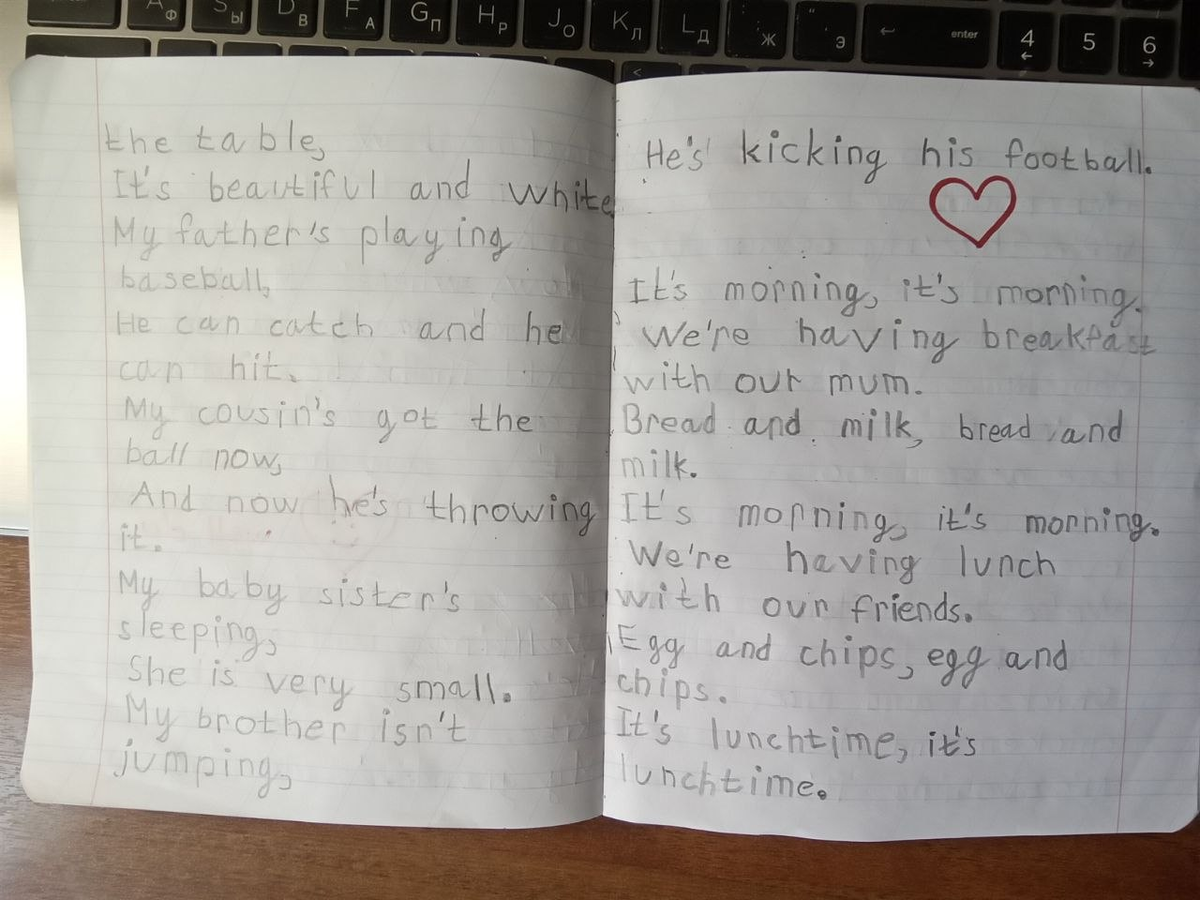 А Ф
S Ы
D В
F А
G П
H Р
J О
K Л
L Д
Ж
Э
enter
4
5
6
the table,
It's beautiful and white
My father's playing
baseball,
He can catch and he
can hit.
My cousin's got the
ball now,
And now he's throwing
it.
My baby sister's
sleeping,
She is very small.
My brother isn't
jumping,
He's kicking his football.
It's morning, it's morning.
We're having breakfast
with our mum.
Bread and milk, bread and
milk.
It's morning, it's morning.
We're having lunch
with our friends.
Egg and chips, egg and
chips.
It's lunchtime, it's
lunchtime.